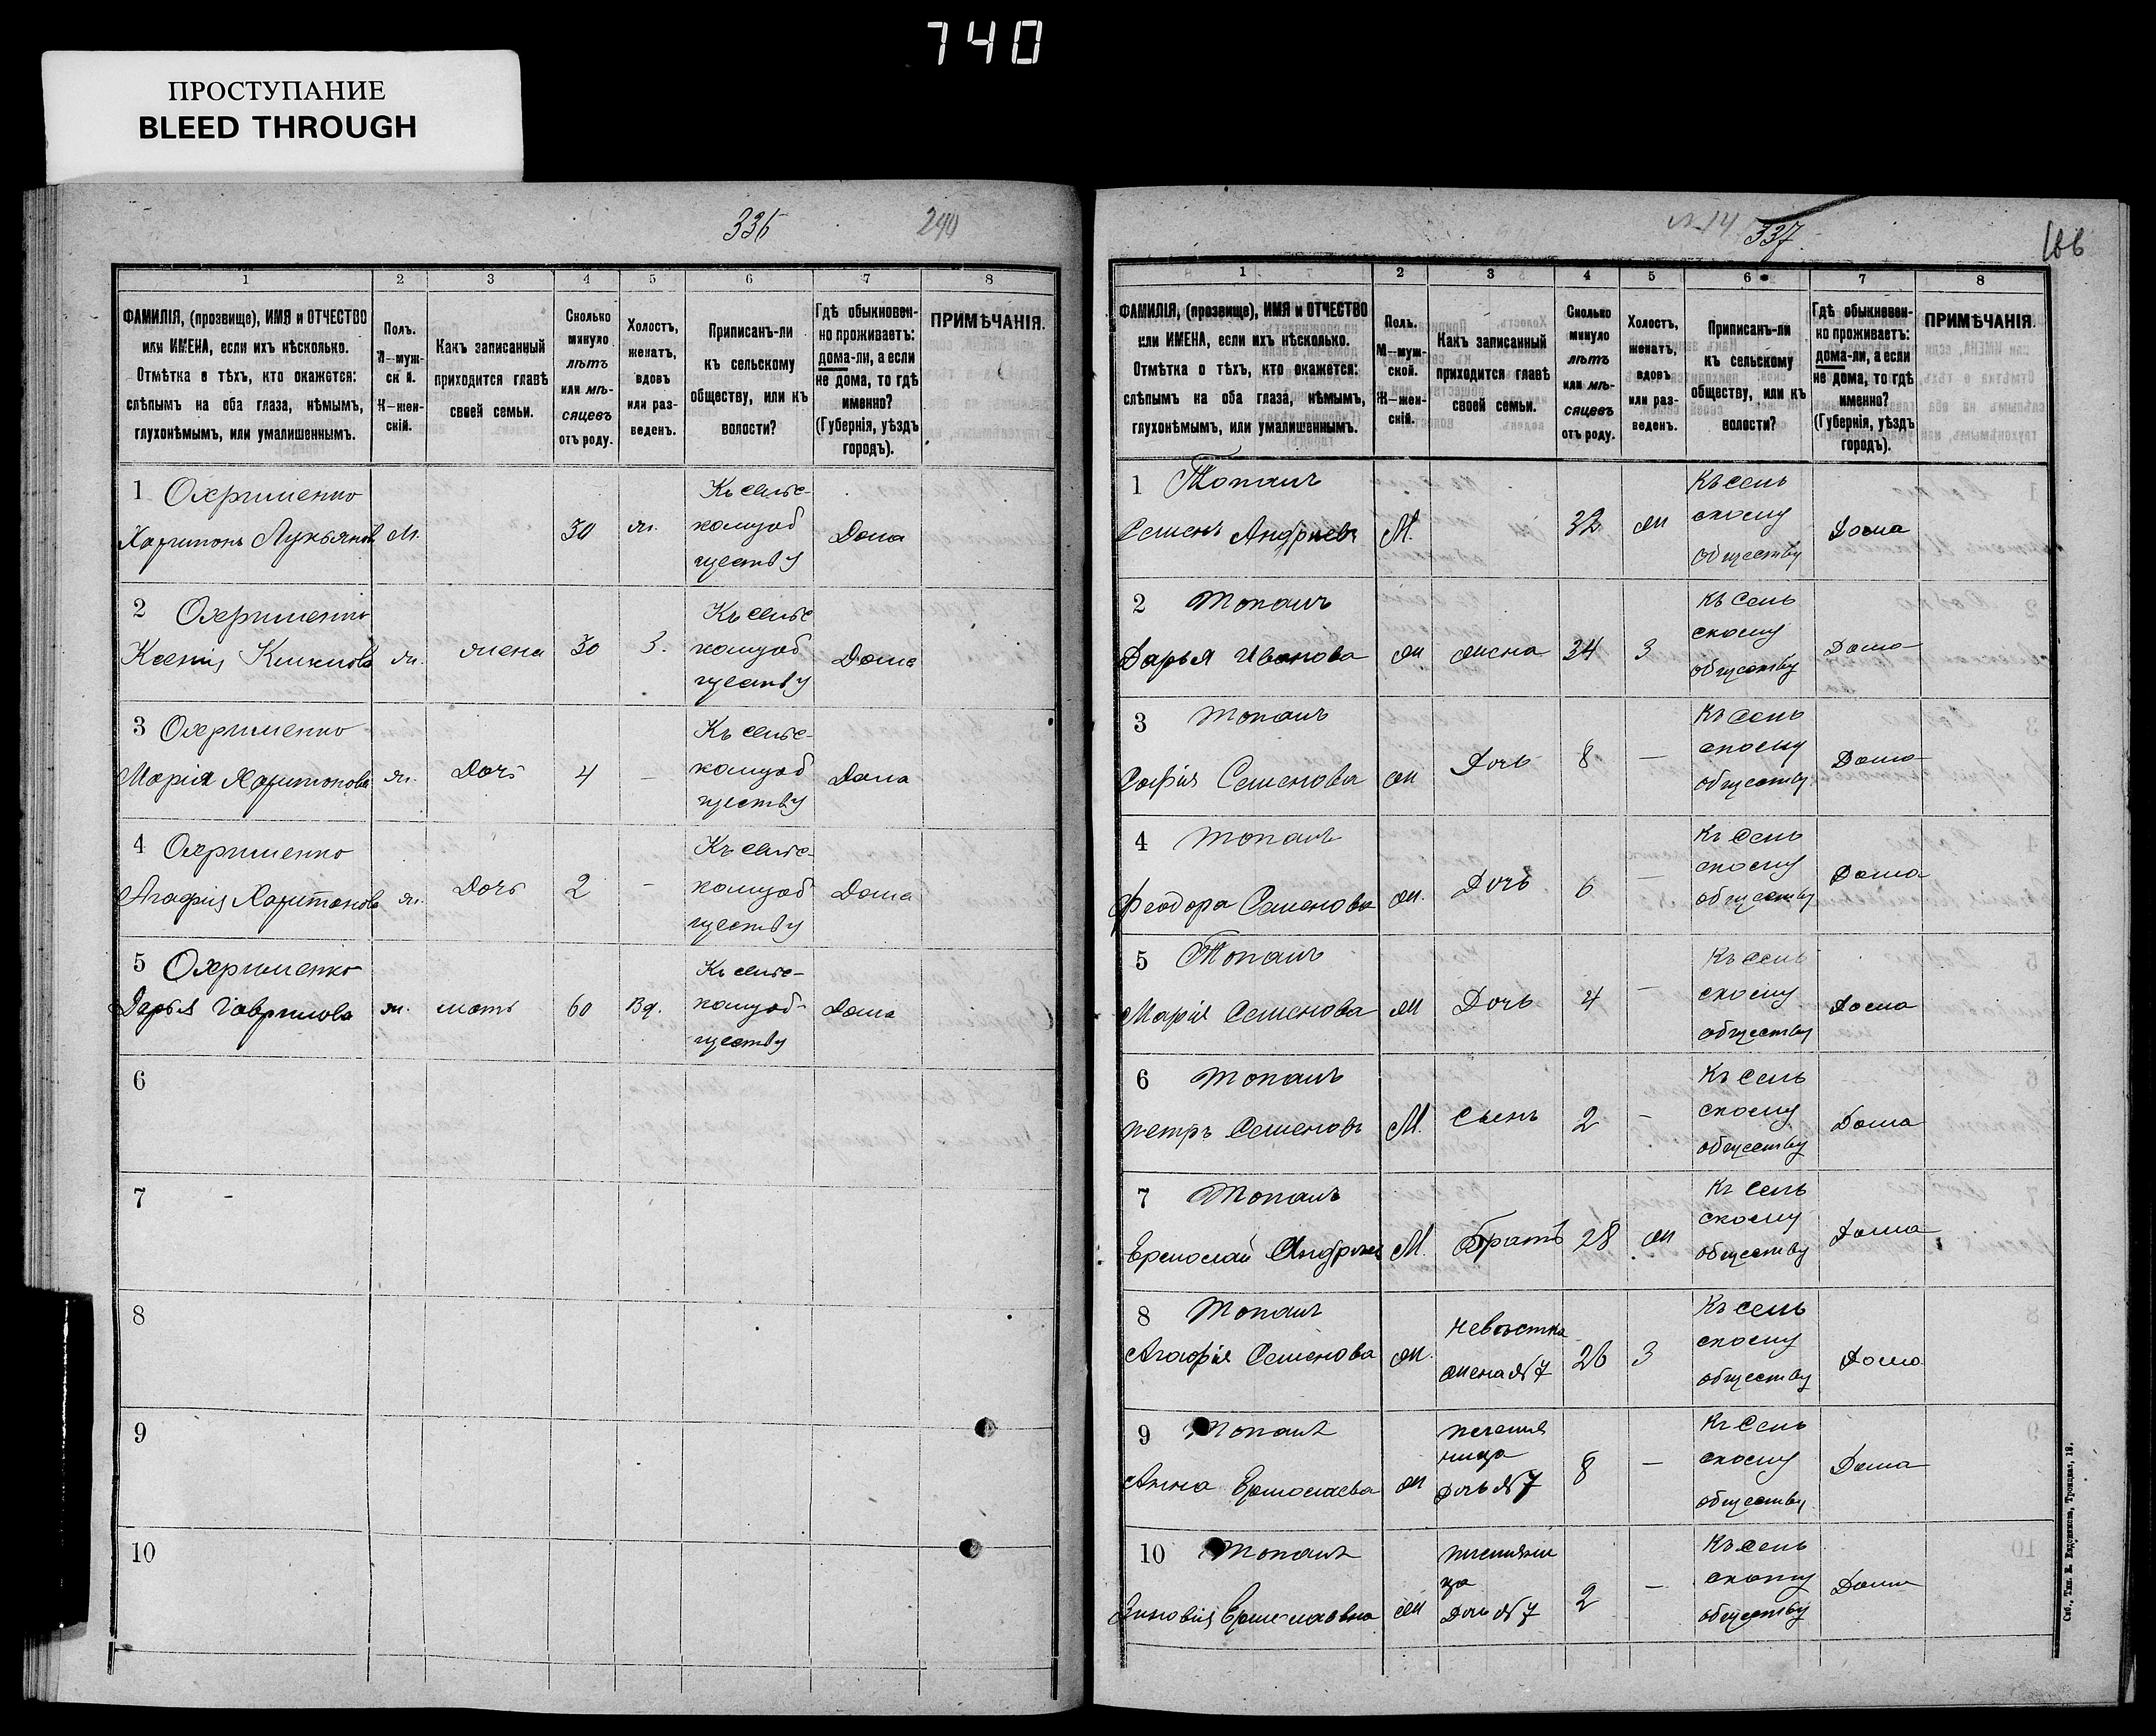 740
ПРОСТУПАНИЕ
BLEED THROUGH
336
290
1 2 3 4 5 6 7 8
ФАМИЛІЯ, (прозвище), ИМЯ и ОТЧЕСТВО
или ИМЕНА, если ихъ нѣсколько.
Отмѣтка о тѣхъ, кто окажется:
слѣпымъ на оба глаза, нѣмымъ,
глухонѣмымъ, или умалишеннымъ.
Полъ.
М—муж-
ск й.
Ж—жен-
скій.
Какъ записанный
приходится главѣ
своей семьи.
Сколько
минуло
лѣтъ
или мѣ-
сяцевъ
отъ роду.
Холостъ,
женатъ,
вдовъ
или раз-
веденъ.
Приписанъ-ли
къ сельскому
обществу, или къ
волости?
Гдѣ обыкновен-
но проживаетъ:
дома-ли, а если
не дома, то гдѣ
именно?
(Губернія, уѣздъ
городъ).
ПРИМѢЧАНІЯ.
1 Охрименко
Харитонъ Лукьяновъ м. 30 ж. Къ сельс-
комуоб
ществу Дома
2 Охрименко
Ксенія Климова ж. жена 30 З. Къ сельс
комуоб
ществу Дома
3 Охрименко
Марія Харитонова ж. Дочь 4 - Къ сельс-
комуоб
ществу Дома
4 Охрименко
Агафія Харитонова ж. Дочь 2 - Къ сельс-
комуоб
ществу Дома
5 Охрименко
Дарья Гаврилова ж. мать 60 Вд. Къ сельс-
комуоб-
ществу Дома
6
7
8
9
10
№ 14
337
166
1 2 3 4 5 6 7 8
ФАМИЛІЯ, (прозвище), ИМЯ и ОТЧЕСТВО
или ИМЕНА, если ихъ нѣсколько.
Отмѣтка о тѣхъ, кто окажется:
слѣпымъ на оба глаза, нѣмымъ,
глухонѣмымъ, или умалишеннымъ.
Полъ.
М—муж-
ской.
Ж—жен-
скій.
Какъ записанный
приходится главѣ
своей семьи.
Сколько
минуло
лѣтъ
или мѣ-
сяцевъ
отъ роду.
Холостъ,
женатъ,
вдовъ
или раз-
веденъ.
Приписанъ-ли
къ сельскому
обществу, или къ
волости?
Гдѣ обыкновен-
но проживаетъ:
дома-ли, а если
не дома, то гдѣ
именно?
(Губернія, уѣздъ
городъ).
ПРИМѢЧАНІЯ.
1 Топалъ
Семенъ Андріевъ М. 32 ж Къ сель
скому
обществу Дома
2 Топалъ
Дарья Иванова ж жена 34 З Къ Сель
скому
обществу Дома
3 Топалъ
Софія Семенова ж Дочь 8 — Къ сель
скому
обществу Дома
4 Топалъ
Феодора Семенова ж. Дочь 6 — Къ Сель
скому
обществу Дома
5 Топалъ
Марія Семенова ж Дочь 4 - Къ сель
скому
обществу Дома
6 Топалъ
Петръ Семеновъ М. Сынъ 2 - Къ Сель
скому
обществу Дома
7 Топалъ
Ермолай Андріевъ М. Братъ 28 ж Къ Сель
скому
обществу Дома
8 Топалъ
Агафія Семенова ж. невѣстка
жена№7 26 З Къ сель
скому
обществу Дома
9 Топалъ
Анна Ермолаева ж племян
ница
Дочь№7 8 — Къ Сель
скому
обществу Дома
10 Топалъ
Зиновія Ермолаевна ж племянни
ца
Дочь№7 2 - Къ Сель
скому
обществу Дома